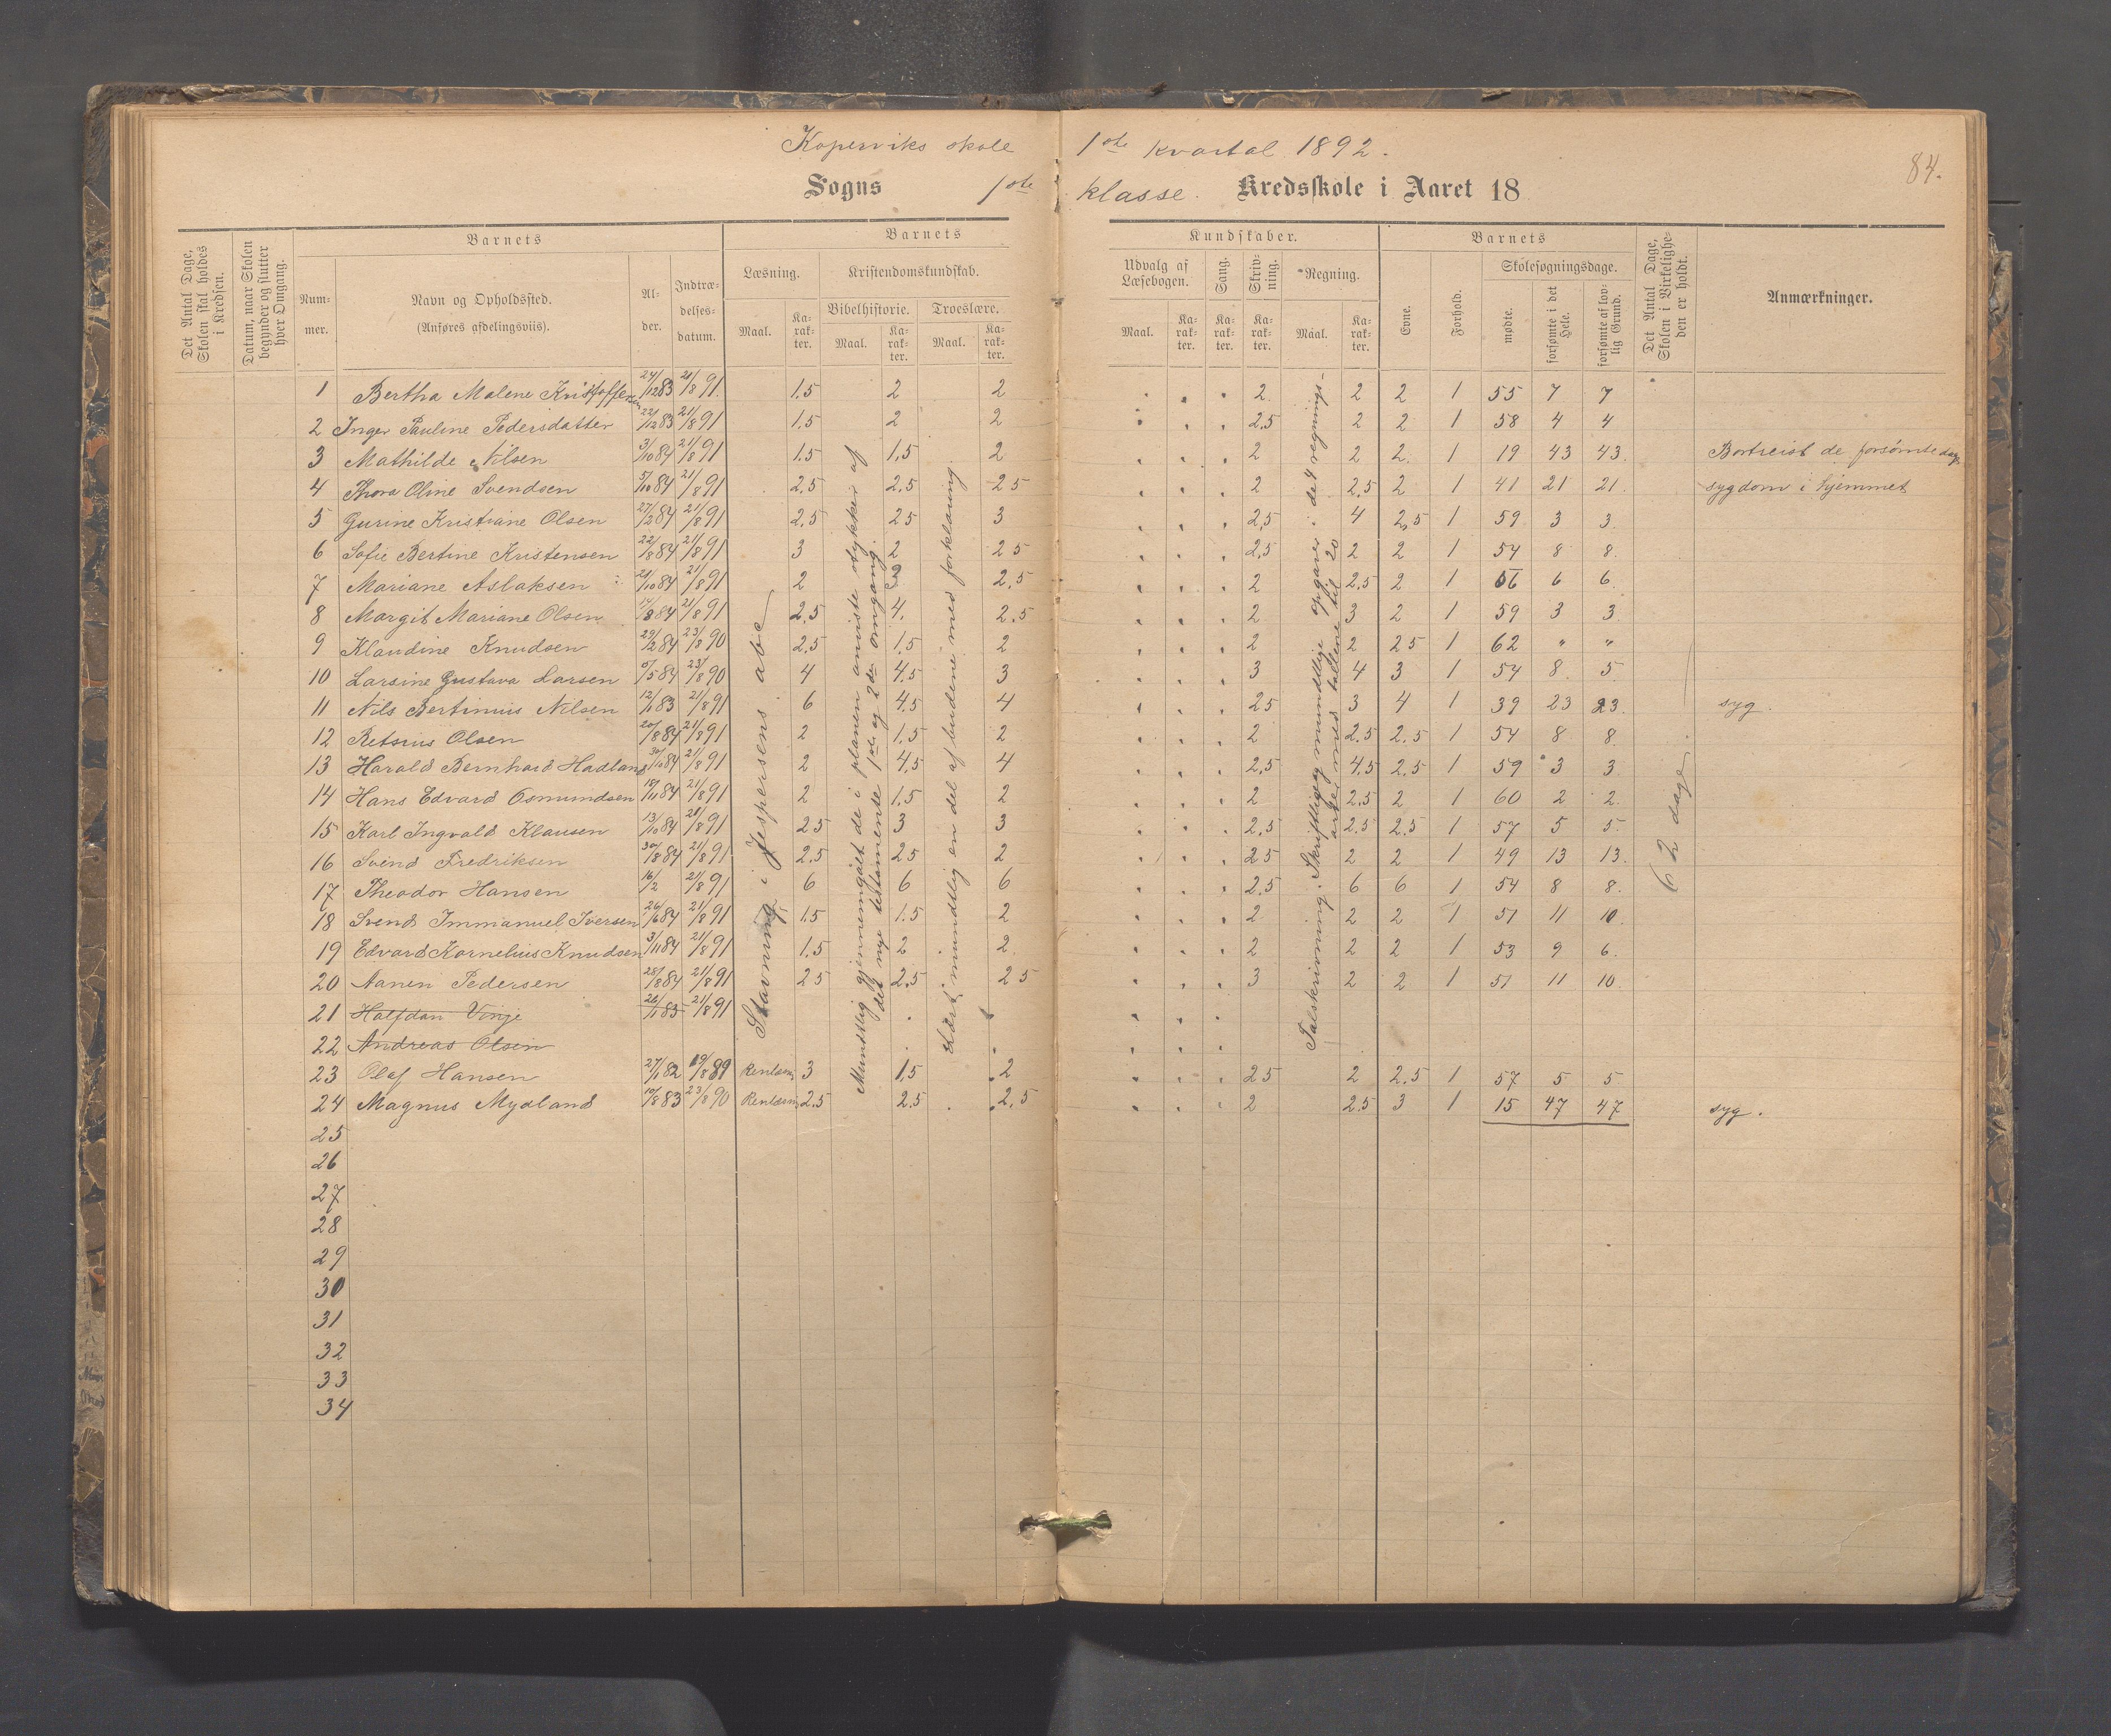 Koperviks skole
1ste kvartal 1892.
84.
Sogns 1ste klasse. Kredsskole i Aaret 18
Det Antal Dage, Skolen skal holdes i Kredsen.
Datum, naar Skolen begynder og slutter hver Omgang.
Barnets
Nummer.
Navn og Opholdssted.
(Anføres afdelingsviis).
Alder.
Indtrædelsesdatum.
Barnets
Læsning.
Maal.
Karakter.
Kristendomskundskab.
Bibelhistorie.
Maal.
Karakter.
Troeslære.
Maal.
Karakter.
Kundskaber.
Udvalg af Læsebogen.
Maal.
Karakter.
Sang.
Karakter.
Skrivning.
Karakter.
Regning.
Maal.
Karakter.
Barnets
Evne.
Forhold.
Skolesøgningsdage.
mødte.
forsømte i det Hele.
forsømte af lovlig Grund.
Det Antal Dage, Skolen i Virkeligheden er holdt.
Anmærkninger.
1 Bertha Malene Kristoffersen 24/12 83 21/8 91 1.5 2 2 2 2 2 1 55 7 7
2 Inger Pauline Pedersdatter 22/12 83 21/8 91 1.5 2 2 2,5 2 2 1 58 4 4
3 Mathilde Nilsen 3/10 84 21/8 91 1.5 1,5 2 2 2 2 1 19 43 43 Bortreist de forsømte dage
4 Thora Oline Svendsen 5/10 84 21/8 91 2,5 2,5 2 5 2 2,5 2 1 41 21 21 sygdom i hjemmet
5 Gurine Kristiane Olsen 27/2 84 21/8 91 2,5 2 5 3 2,5 4 2,5 1 59 3 3
6 Sofie Bertine Kristensen 22/8 84 21/8 91 3 2 2 5 2,5 2 2 1 54 8 8
7 Mariane Aslaksen 21/10 84 21/8 91 2 2 2,5 2 2,5 2 1 56 6 6
8 Margit Mariane Olsen 84 21/8 91 2,5 4 2,5 2 3 2 1 59 3 3
9 Klaudine Knudsen 29/2 84 23/8 90 2,5 1,5 2 2 2 2 5 1 62 " "
10 Larsine Gustava Larsen 84 23/8 90 4 4,5 3 3 4 3 1 54 8 5
11 Nils Bertinius Nilsen 12/1 83 21/8 91 6 4,5 4 2 5 3 4 1 39 23 23 syg.
12 Retsius Olsen 20/8 84 21/8 91 2 1,5 2 2 2,5 2,5 1 54 8 8
13 Harald Bernhard Hadland 30/10 84 21/8 91 2 4,5 4 2,5 4,5 2,5 1 59 3 3
14 Hans Edvard Osmundsen 84 21/8 91 2 1,5 2 2 2,5 2 1 60 2 2
15 Karl Ingvald Klausen 13/10 84 21/8 91 2 5 3 3 2,5 2,5 2,5 1 57 5 5
16 Svend Fredriksen 30/8 84 21/8 91 2,5 2 5 2 2 5 2 2 1 49 13 13
17 Theodor Hansen 16/2 21/8 91 6 6 6 2,5 6 6 1 54 8 8
18 Svend Immanuel Iversen 26/6 84 21/8 91 1.5 1.5 2 2 2 2 1 51 11 10
19 Edvard Kornelius Knudsen 3/11 84 21/8 91 1,5 2 2 2 2 2 1 53 9 6
20 Aanen Pedersen 28/8 84 21/8 91 2 5 2,5 2 5 3 2 2 1 51 11 10
21 Halfdan Vinje 26/1 83 21/8 91
22 Andreas Olsen
23 Olaf Hansen 27/1 82 19/8 89 Renlæsn. 3 1,5 2 2 5 2 2,5 1 57 5 5
24 Magnus Mydland 10/8 83 23/8 90 Renlæsn. 2,5 2,5 2,5 2 2,5 3 1 15 47 47 syg.
25
26
27
28
29
30
31
32
33
34
Stavning i Jespersens abc
Mundtlig gjennemgaaet de i planen anviste stykker af
det nye testamente 1ste og 2den omgang.
Lært mundtlig en del af budene med forklaring
Talskrivning. Skriftlige og mundtlige opgaver i de 4 regnings-
arter med tallene til 20
62 dage.